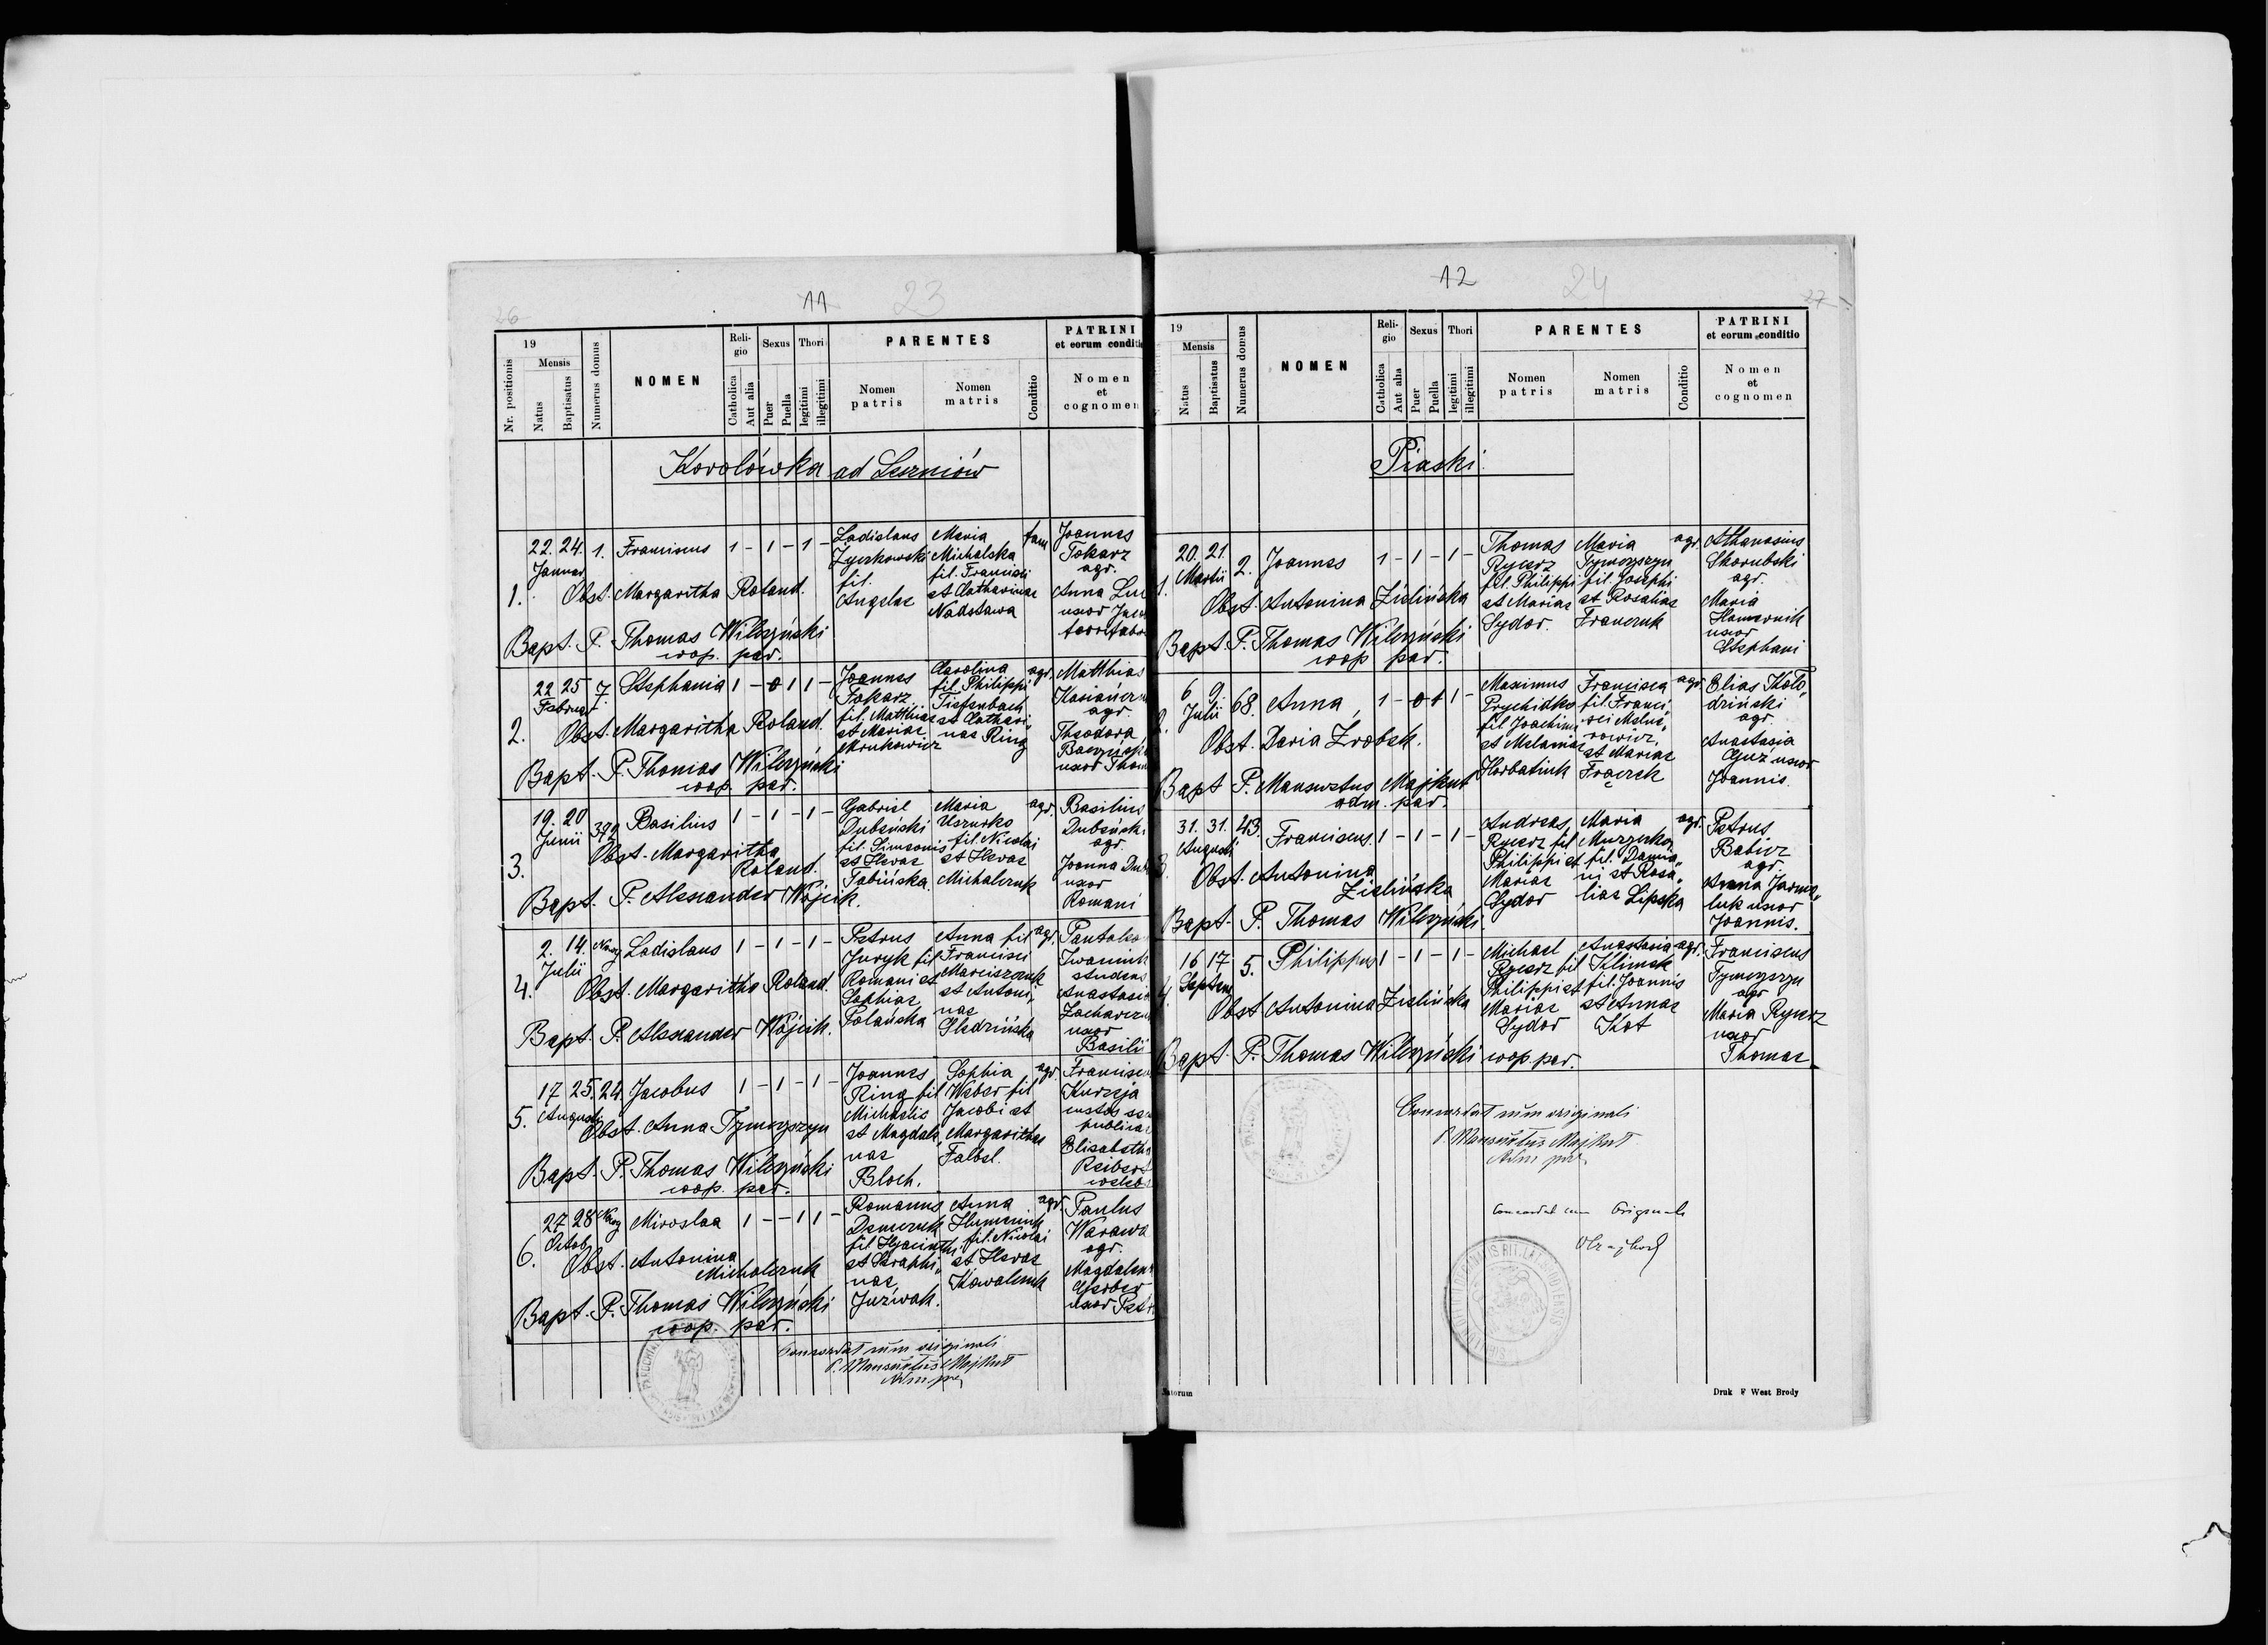 26
11
23
19
Nr. positionis
Mensis
Natus
Baptisatus
Numerus domus
NOMEN
Reli-
gio
Catholica
Aut alia
Sexus
Puer
Puella
Thori
legitimi
illegitimi
PARENTES
Nomen
patris
Nomen
matris
Conditio
PATRINI
et eorum conditio
Nomen
et
cognomen
Korolówka ad Leszniów
1.
22. 24. 1. Franciscus 1 - 1 - 1 -
Januar
Obst. Margaritha Roland.
Bapt. P. Thomas Wilczyński
coop. par.
Ladislaus
Zyczkowski
fil.
Angelae
Maria
Michalska
fil. Francisci
et Catharinae
Nadstawa
fam
Joannes
Tokarz
agr.
Anna
uxor
2.
22 25 7. Stephania 1 - 0 1 1 -
Februar
Obst. Margaritha Roland.
Bapt. P. Thomas Wilczyński
coop. par.
Joannes
Tokarz
fil. Matthiae
et Mariae
Mrukowicz
Carolina
fil. Philippi
Tiefenbach
et Cathari„
nae Ring
agr.
Matthias
agr.
Theodora
uxor
3.
19. 20 372 Basilius 1 - 1 - 1 -
Junii
Obst. Margaritha
Roland.
Bapt. P. Alexander Wójcik.
Gabriel
Dubeński
fil. Simeonis
et Hevae
Tabińska.
Maria
Uszurko
fil. Nicolai
et Hevae
Michalczuk
agr.
Basilius
agr.
Joanna
uxor
Romani
4.
2. 14. Ladislaus 1 - 1 - 1 -
Julii
Obst. Margaritha Roland.
Bapt. P. Alexander Wójcik.
Petrus
Juryk fil
Romani et
Sophiae
Polańska
Anna fil
Francisci
et Antoni„
nae
agr.
studens
uxor
Basilii
5.
17 25. 24. Jacobus 1 - 1 - 1 -
Augusti
Obst. Anna Tymczszyn
Bapt. P. Thomas Wilczyński
coop. par.
Joannes
Ring fil
Michaelis
et Magdale„
nae
Bloch.
Sophia
Weber fil
Jacobi et
Margarithae
Falbel.
agr.
Kurzeja
custos
6.
27 28 Miroslaa 1 - - 1 1 -
Octob
Obst. Antonina
Michalczuk
Bapt. P. Thomas Wilczyński
coop. par.
Romanus
Demczuk
fil Hyacinthi
et Seraphi„
nae
Juźwak.
Anna
Humeniuk
fil. Nicolai
et Hevae
Kowalczuk
agr.
Paulus
Warawa
agr.
uxor
Concordat cum originali
P. Mansuetus Majkut
Adm par
12
24
27
19
Mensis
Natus
Baptisatus
Numerus domus
NOMEN
Reli-
gio
Catholica
Aut alia
Sexus
Puer
Puella
Thori
legitimi
illegitimi
PARENTES
Nomen
patris
Nomen
matris
Conditio
PATRINI
et eorum conditio
Nomen
et
cognomen
Piaski
1.
20. 21. 2. Joannes 1 - 1 - 1 -
Martii
Obst. Antonina Zielińska
Bapt. P. Thomas Wilczyński
coop par.
Thomas
Rycerz
fil. Philippi
et Mariae
Sydor.
Maria
Tymczszyn
fil. Josephi
et Rosaliae
Franczuk
agr.
Athanasius
Skorubski
agr.
Maria
uxor
Stephani
2.
6 9. 68. Anna 1 - 0 1 1 -
Julii
Obst. Daria Zrobek.
Bapt P. Mansuetus Majkut
adm. par.
Maximus
Prychidko
fil Joachimi
et Melaniae
Horbatiuk
Francisca
fil. Franci„
et Mariae
Frączek
agr.
Elias Koło„
dziński
agr.
Anastasia
Guź uxor
Joannis.
3.
31. 31. 43. Franciscus. 1 - 1 - 1 -
Augusti
Obst. Antonina
Zielińska
Bapt. P. Thomas Wilczyński.
Andreas
Rycerz fil
Philippi et
Mariae
Sydor
Maria
Muzyczka
fil. Damia„
ni et Rosa„
liae Lipska
agr.
Petrus
Babicz
agr.
Anna Jarmo„
luk uxor
Joannis.
4.
16 17 5. Philippus 1 - 1 - 1 -
Septem
Obst Antonina Zielińska
Bapt. P. Thomas Wilczyński coop. par.
Michael
Rycerz fil
Philippi et
Mariae
Sydor
Anastasia
Klimek
fil. Joannis
et Annae
Kot
agr.
Franciscus
Tymczszyn
agr
Maria Rycerz
uxor
Thomae
Concordat cum originali
P. Mansuetus Majkut
Adm par
Concordat cum Originale
Natorum
Druk F West Brody